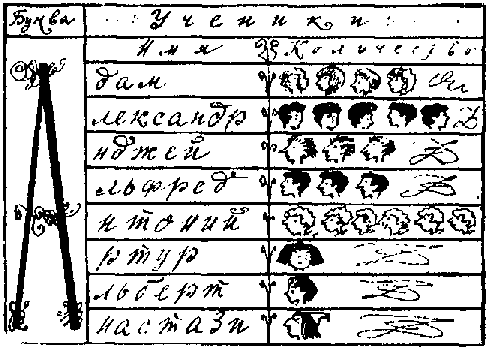 Буква
Ученики
Имя Количество
А
дам
лександр
нджей
льфред
нтоний
ртур
льберт
настази